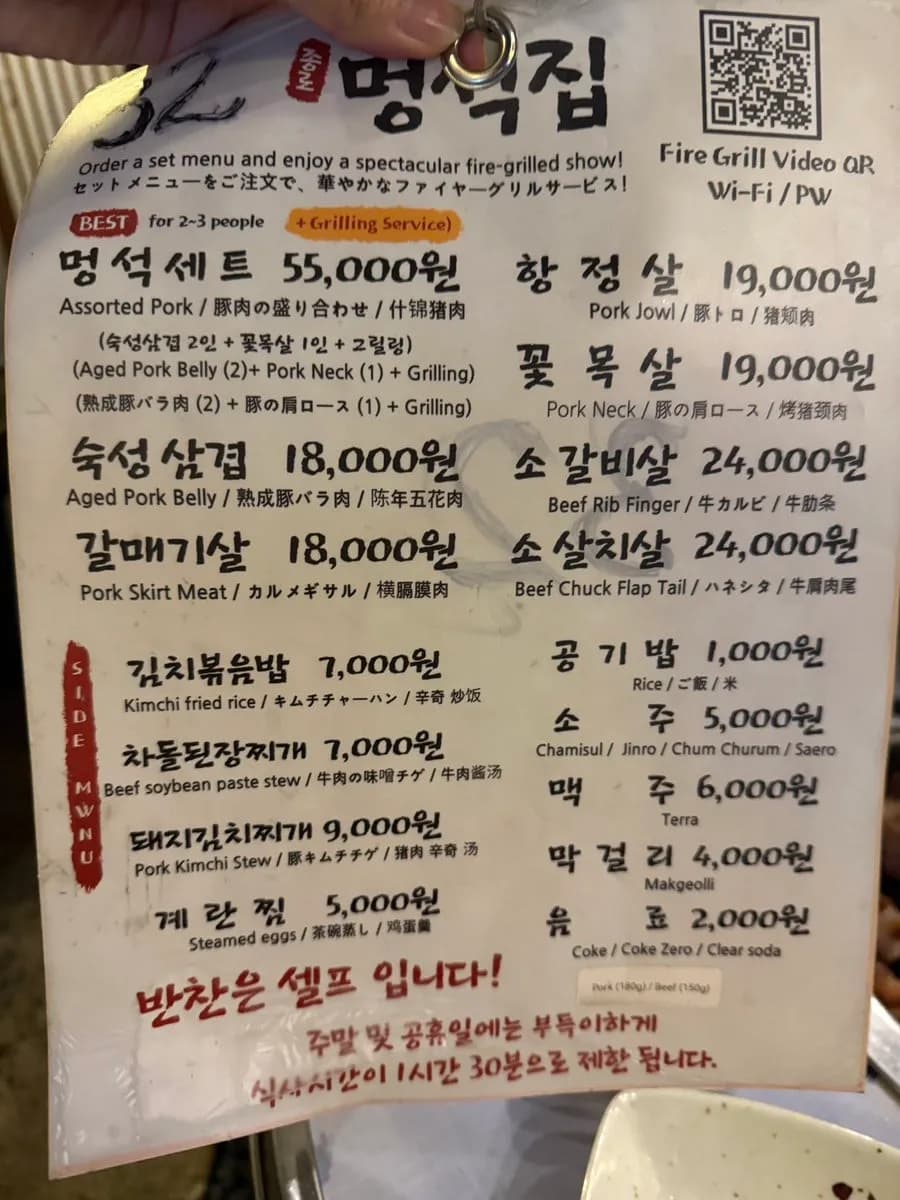 32
종로
멍석집
Order a set menu and enjoy a spectacular fire-grilled show!
セットメニューをご注文で、華やかなファイヤーグリルサービス!
Fire Grill Video QR
Wi-Fi / PW
BEST for 2~3 people + Grilling Service)
멍석세트 55,000원
Assorted Pork / 豚肉の盛り合わせ / 什锦猪肉
(숙성삼겹 2인 + 꽃목살 1인 + 그릴링)
(Aged Pork Belly (2)+ Pork Neck (1) + Grilling)
(熟成豚バラ肉 (2) + 豚の肩ロース (1) + Grilling)
숙성삼겹 18,000원
Aged Pork Belly / 熟成豚バラ肉 / 陈年五花肉
갈매기살 18,000원
Pork Skirt Meat / カルメギサル / 横膈膜肉
항정살 19,000원
Pork Jowl / 豚トロ / 猪颊肉
꽃목살 19,000원
Pork Neck / 豚の肩ロース / 烤猪颈肉
소갈비살 24,000원
Beef Rib Finger / 牛カルビ / 牛肋条
소살치살 24,000원
Beef Chuck Flap Tail / ハネシタ / 牛肩肉尾
SIDE MWNU
김치볶음밥 7,000원
Kimchi fried rice / キムチチャーハン / 辛奇 炒饭
차돌된장찌개 7,000원
Beef soybean paste stew / 牛肉の味噌チゲ / 牛肉酱汤
돼지김치찌개 9,000원
Pork Kimchi Stew / 豚キムチチゲ / 猪肉 辛奇 汤
계란찜 5,000원
Steamed eggs / 茶碗蒸し / 鸡蛋羹
공기밥 1,000원
Rice / ご飯 / 米
소주 5,000원
Chamisul / Jinro / Chum Churum / Saero
맥주 6,000원
Terra
막걸리 4,000원
Makgeolli
음료 2,000원
Coke / Coke Zero / Clear soda
Pork (180g) / Beef (150g)
반찬은 셀프 입니다!
주말 및 공휴일에는 부득이하게
식사시간이 1시간 30분으로 제한 됩니다.